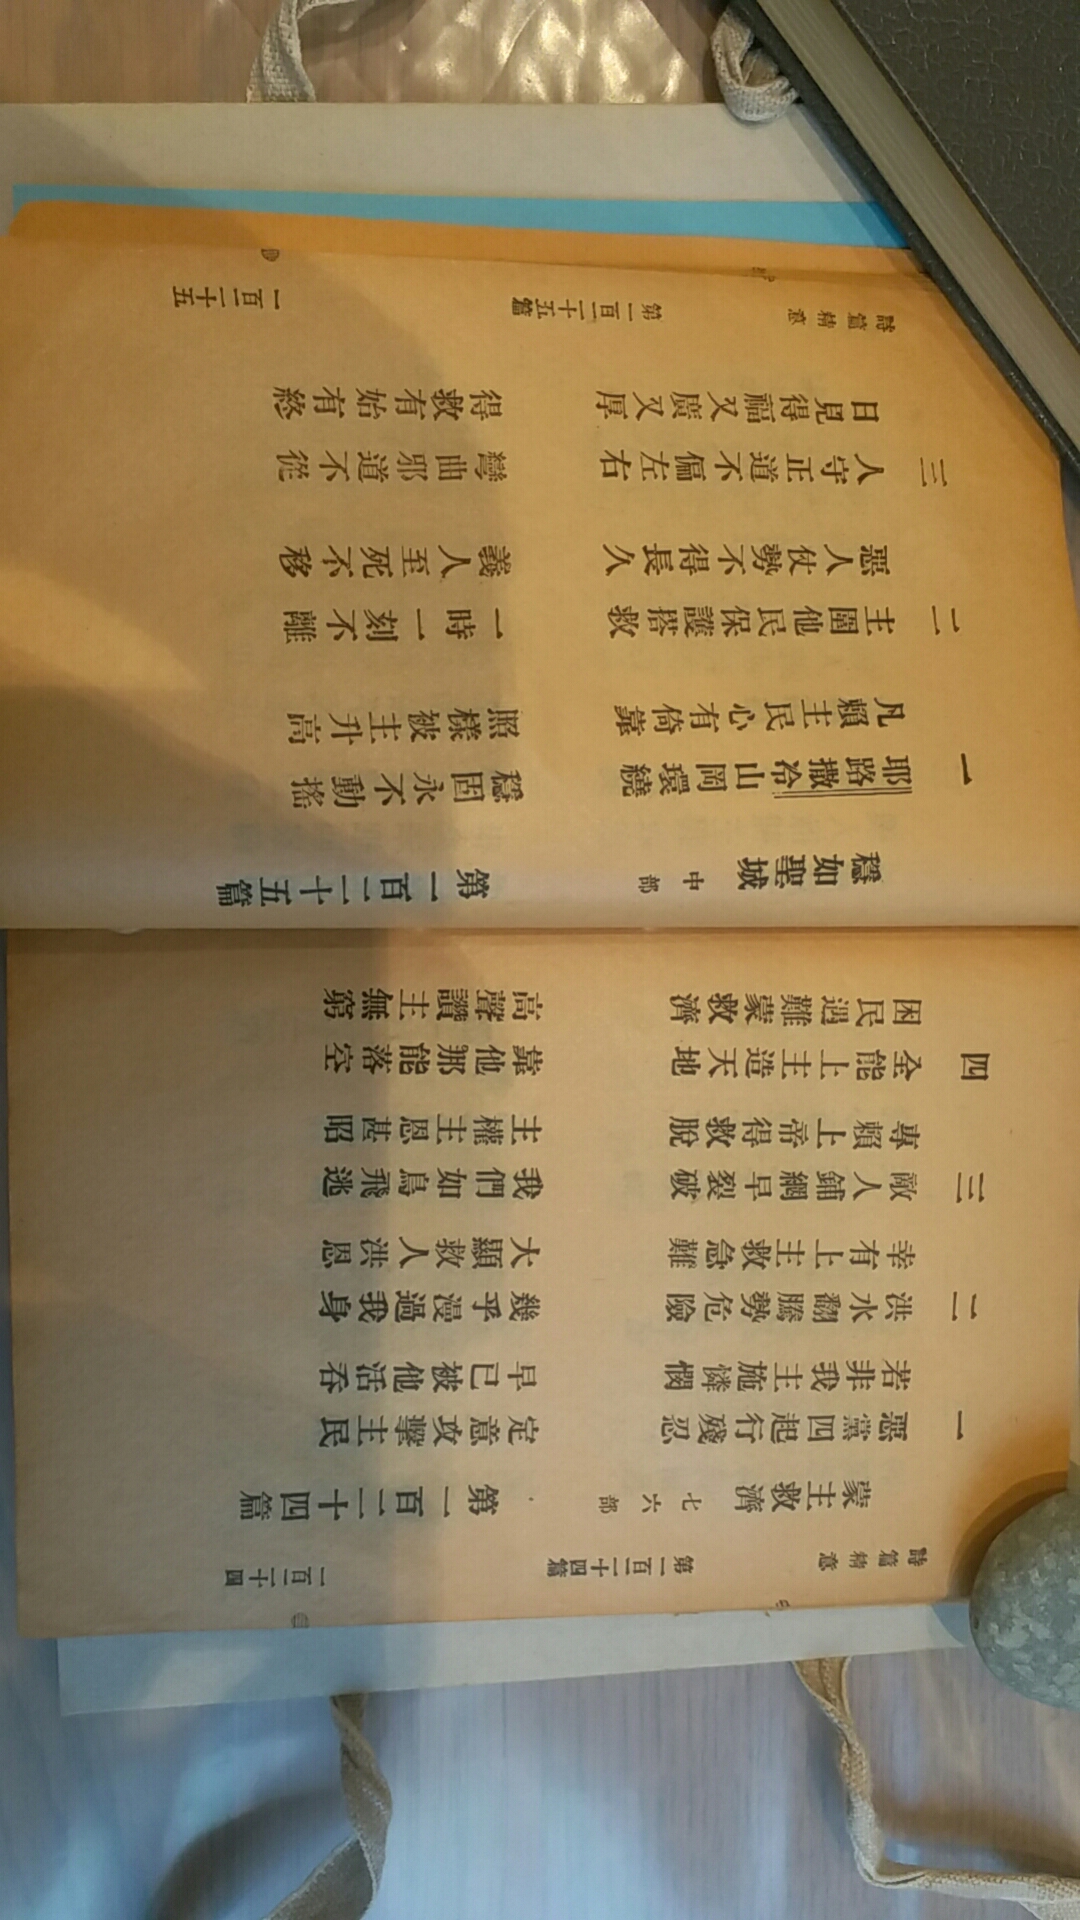 詩篇精意 第一百二十四篇 一百二十四
蒙主救濟 七六部 第一百二十四篇
一 惡黨四起行殘忍 定意攻擊主民
若非我主施憐憫 早已被他活吞
二 洪水翻騰勢危險 幾乎漫過我身
幸有上主救急難 大顯救人洪恩
三 敵人鋪網早裂破 我們如鳥飛逃
專賴上帝得救脫 主權主恩甚昭
四 全能上主造天地 靠他那能落空
困民遇難蒙救濟 高聲讚主無窮
穩如聖城 中部 第一百二十五篇
一 耶路撒冷山岡環繞 穩固永不動搖
凡賴主民心有倚靠 照樣被主升高
二 主圍他民保護搭救 一時一刻不離
惡人仗勢不得長久 義人至死不移
三 人守正道不偏左右 彎曲邪道不從
日見得福又廣又厚 得救有始有終
詩篇精意 第一百二十五篇 一百二十五